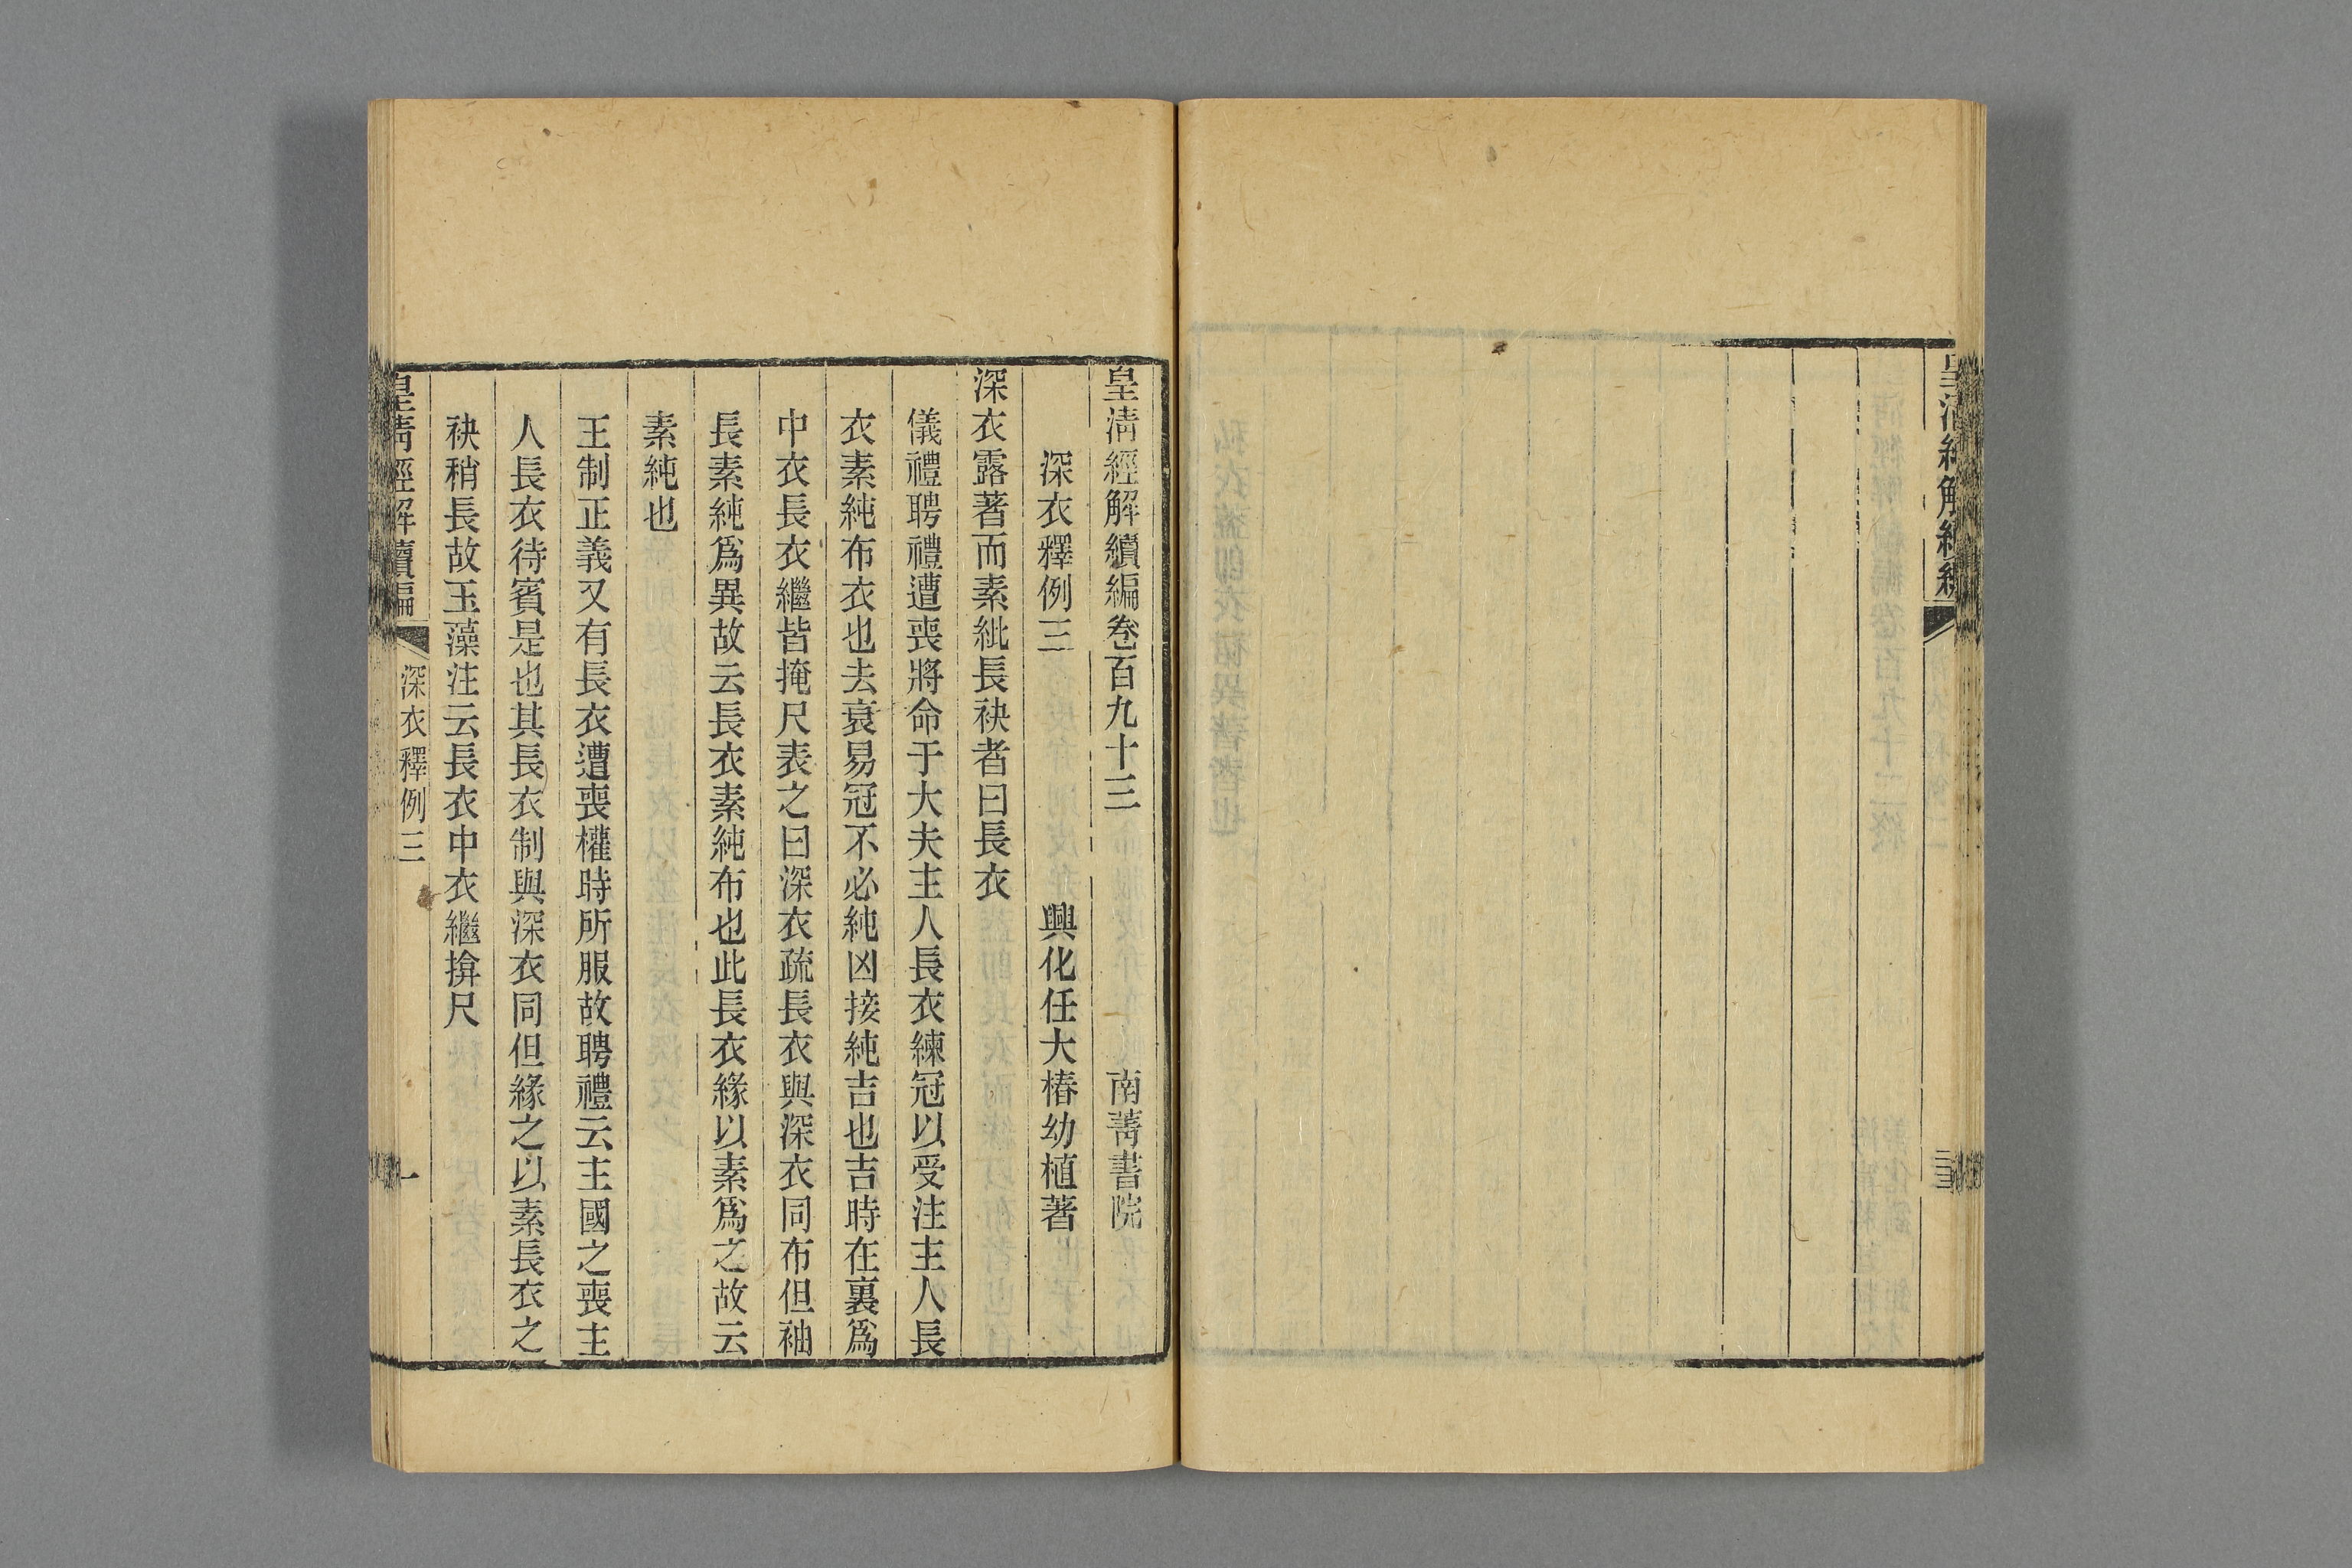 皇清經解續編
三
皇清經解續編卷百九十三
南菁書院
深衣釋例三
興化任大椿幼植著
深衣露著而素紕長袂者曰長衣
儀禮聘禮遭喪將命于大夫主人長衣練冠以受注主人長
衣素純布衣也去衰易冠不必純凶接純吉也吉時在裏爲
中衣長衣繼皆掩尺表之曰深衣疏長衣與深衣同布但袖
長素純爲異故云長衣素純布也此長衣緣以素爲之故云
素純也
王制正義又有長衣遭喪權時所服故聘禮云主國之喪主
人長衣待賓是也其長衣制與深衣同但緣之以素長衣之
袂稍長故玉藻注云長衣中衣繼揜尺
皇清經解續編
深衣釋例三
一